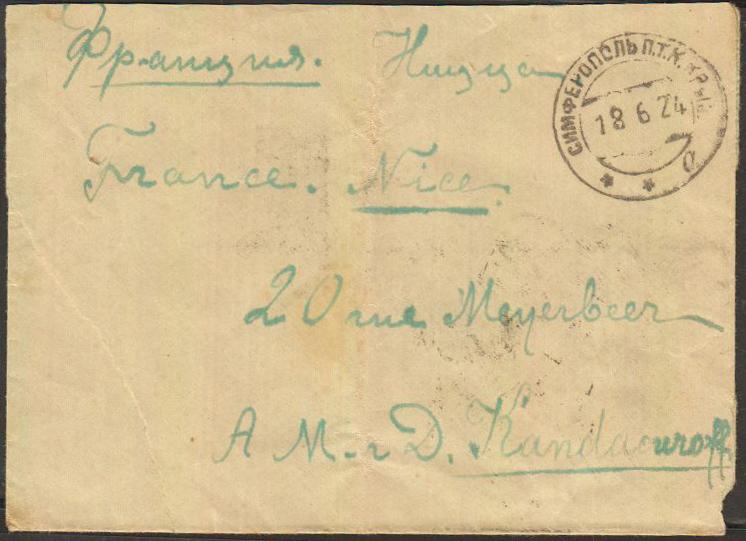 Франция. Ницца
СИМФЕРОПОЛЬ П.Т.К. КРЫМ
18 6 24
а
France. Nice.
20 rue Meyerbeer
A M-r D. Kandaouroff